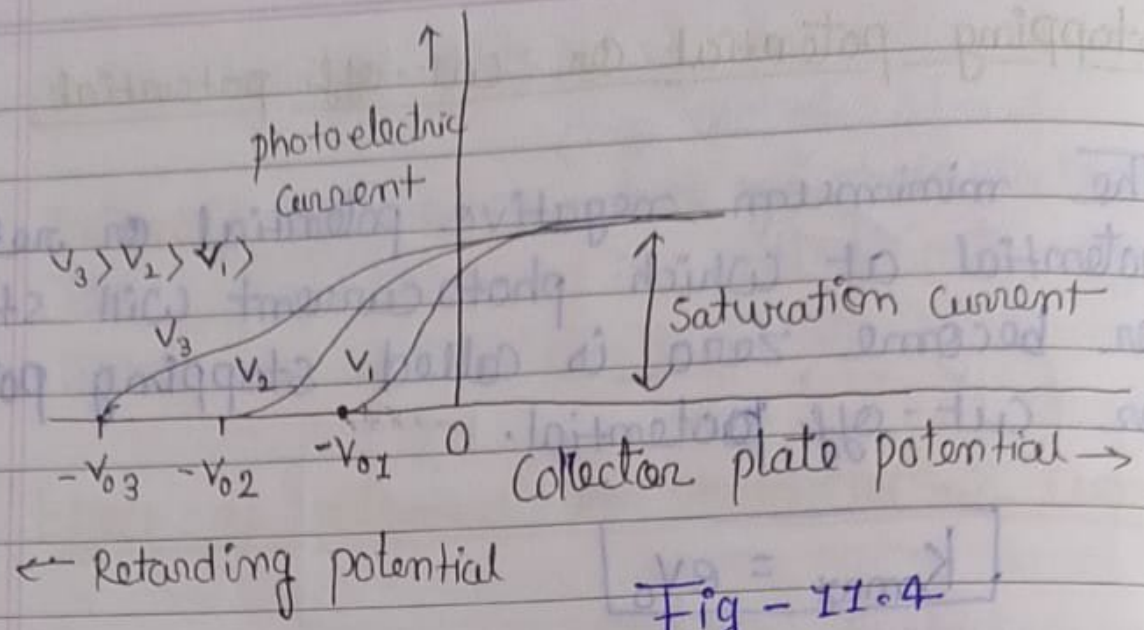 ↑
photoelectric
current
V₃ > V₂ > V₁ >
V₃
V₂
V₁
Saturation current
-V₀₃ -V₀₂ -V₀₁ 0
Collector plate potential →
← Retarding potential
Fig - 11.4